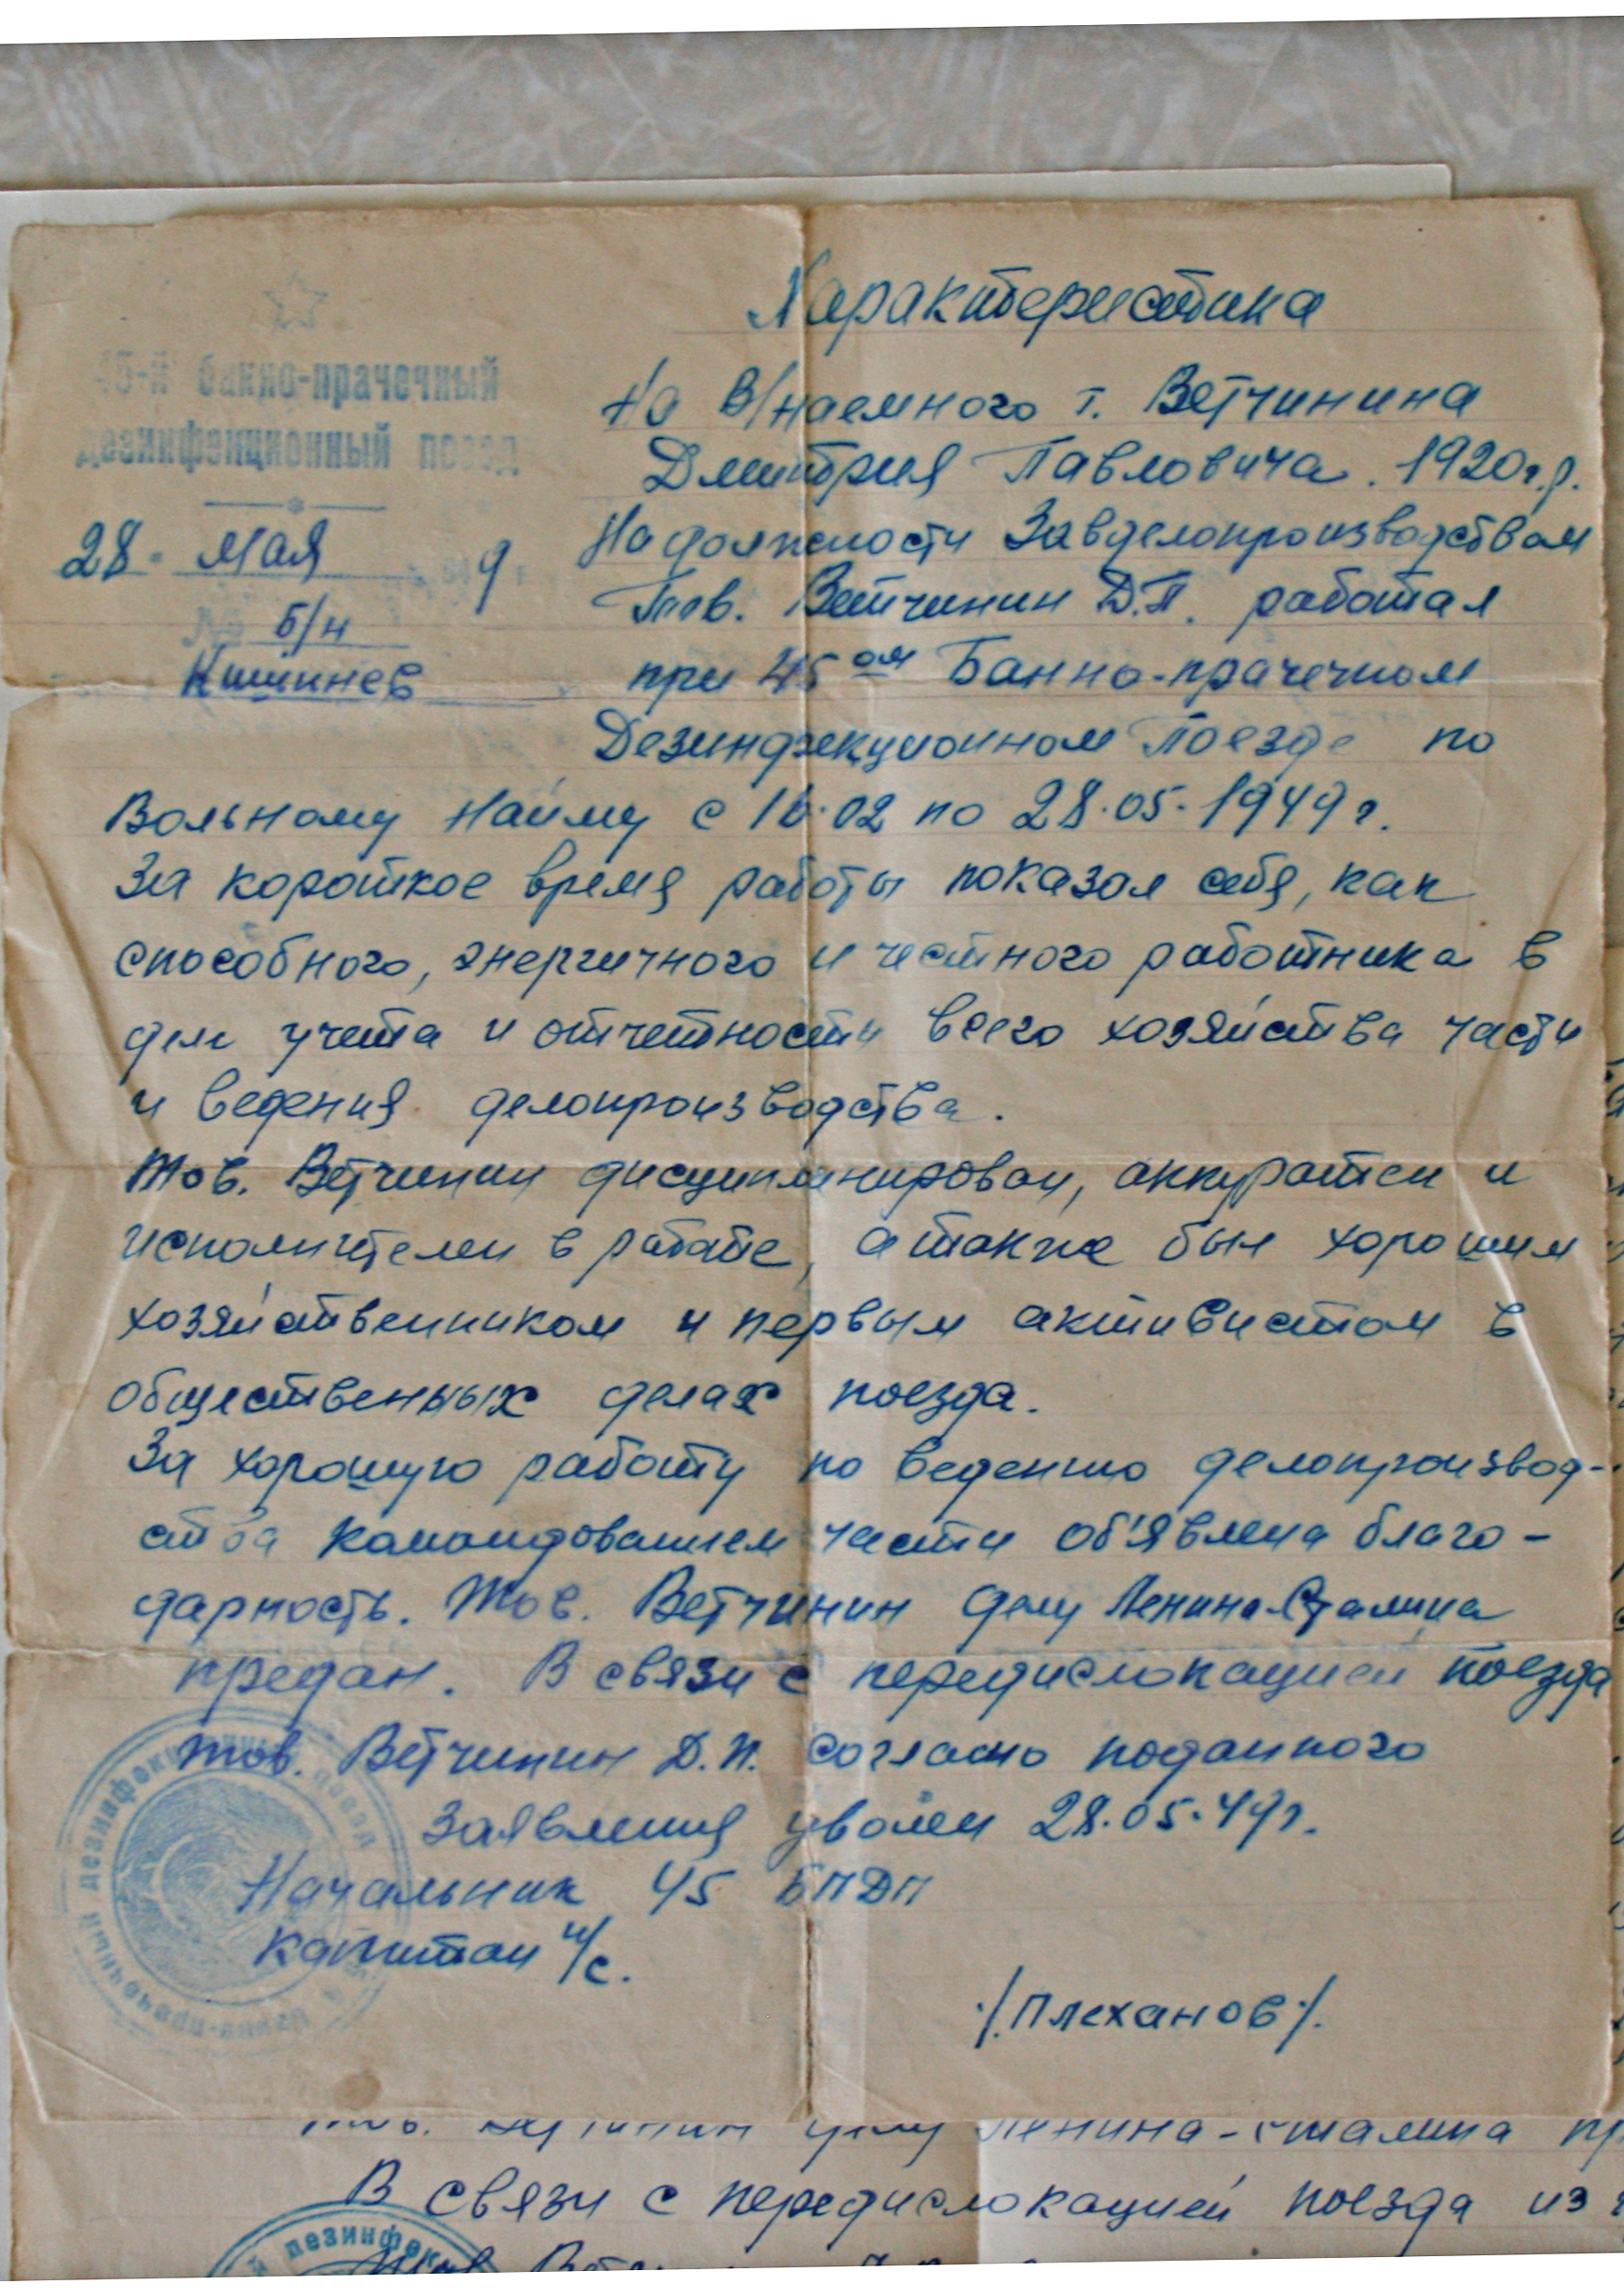 Характеристика
45-й банно-прачечный
дезинфекционный поезд
28 Мая 9
№ б/н
Кишинев
На В/наемного т. Ветчинина
Дмитрия Павловича. 1920 г.р.
На должности Завделопроизводством
Тов. Ветчинин Д.П. работал
при 45ом Банно-прачечном
Дезинфекционном Поезде по
Вольному Найму с 16.02 по 28.05.1949 г.
За короткое время работы показал себя, как
способного, энергичного и честного работника в
деле учета и отчетности всего хозяйства части
и ведения делопроизводства.
Тов. Ветчинин дисциплинирован, аккуратен и
исполнителен в работе, а также был хорошим
хозяйственником и первым активистом в
общественных делах поезда.
За хорошую работу по ведению делопроизвод-
ства командованием части об'явлена благо-
дарность. Тов. Ветчинин делу Ленина-Сталина
предан. В связи с передислокацией поезда
тов. Ветчинин Д.П. согласно поданного
Заявления уволен 28.05.49 г.
Начальник 45 БПДП
Капитан и/с.
/.Плеханов./.
Ленина-Сталина
В связи с передислокацией поезда из
дезинфек